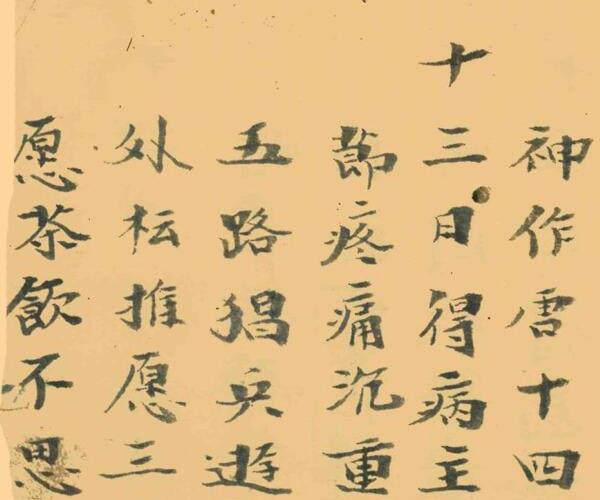 神作唐十四
十三日得病主
莭疼痛沉重
五路猖兵遊
外枟推愿三
愿茶飲不思